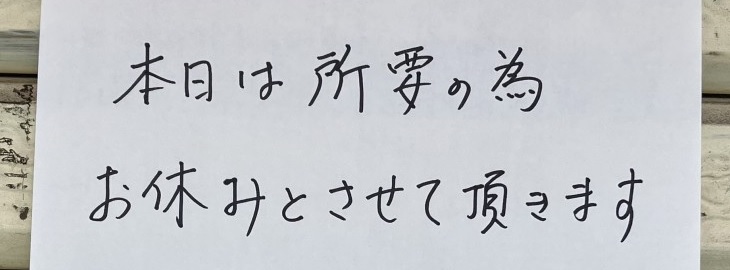 本日は所要の為
お休みとさせて頂きます